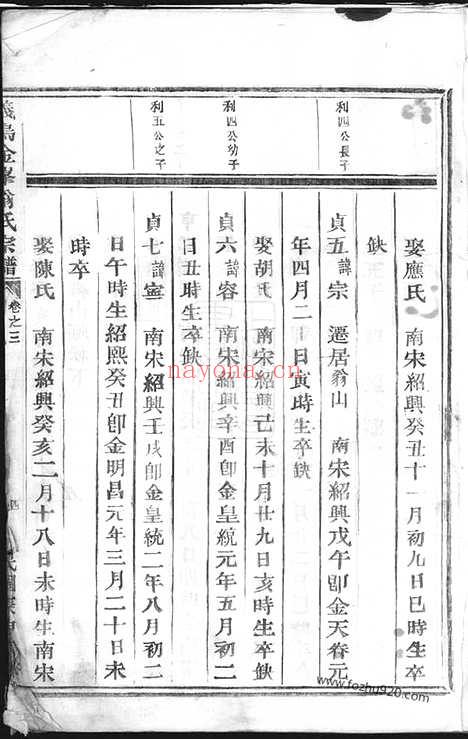 利四公長子
利四公幼子
利五公之子
娶應氏 南宋紹興癸丑十一月初九日巳時生卒
缺
貞五諱宗 遷居翁山 南宋紹興戊午卽金天眷元
年四月二十日寅時生卒缺
娶胡氏 南宋紹興己未十月廿九日亥時生卒缺
貞六諱容 南宋紹興辛酉卽金皇統元年五月初二
日丑時生卒缺
貞七諱寧 南宋紹興壬戌卽金皇統二年八月初二
日午時生紹熙癸丑卽金明昌元年三月二十日未
時卒
娶陳氏 南宋紹興癸亥二月十八日未時生南宋
義烏金峯俞氏宗譜
卷之三
nayona.cn
www.fozhu920.com